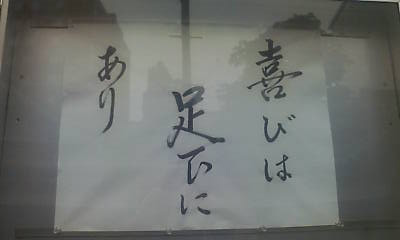 喜びは
足下に
あり